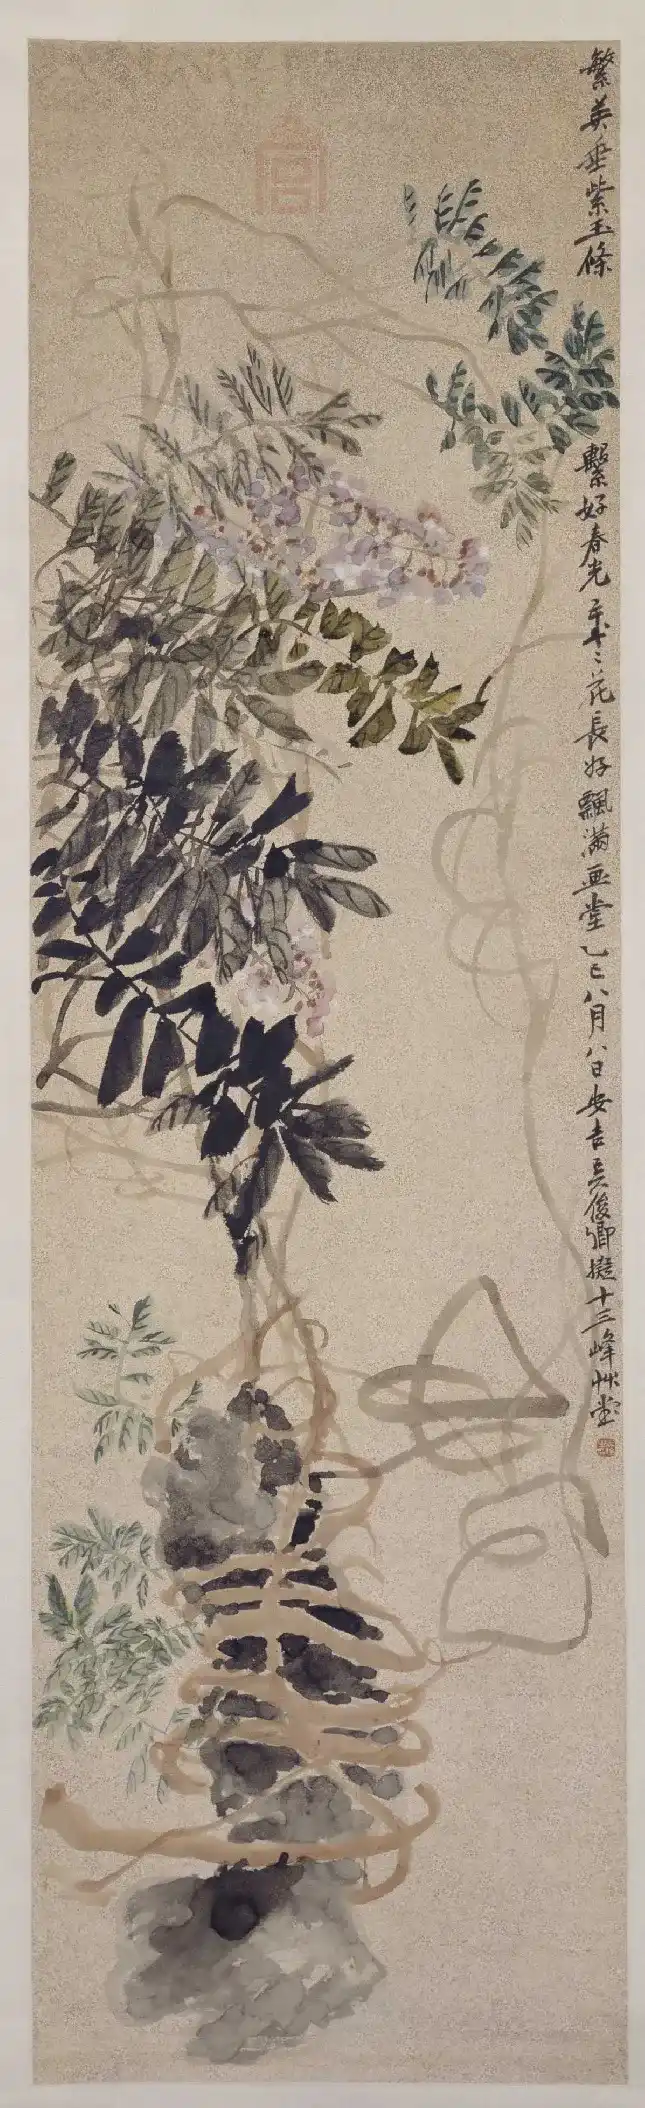 繁英垂紫玉條
繫好春光
花長好飄滿畫堂乙巳八月八日安吉吳俊卿擬十三峰艸堂